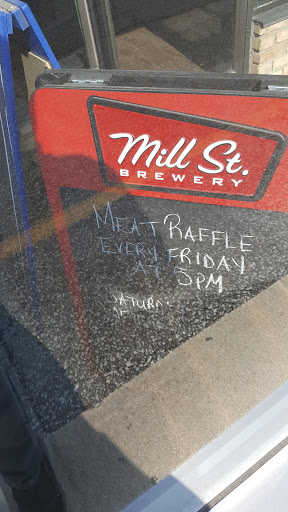 Mill St.
BREWERY
MEAT RAFFLE
EVERY FRIDAY
AT 5PM